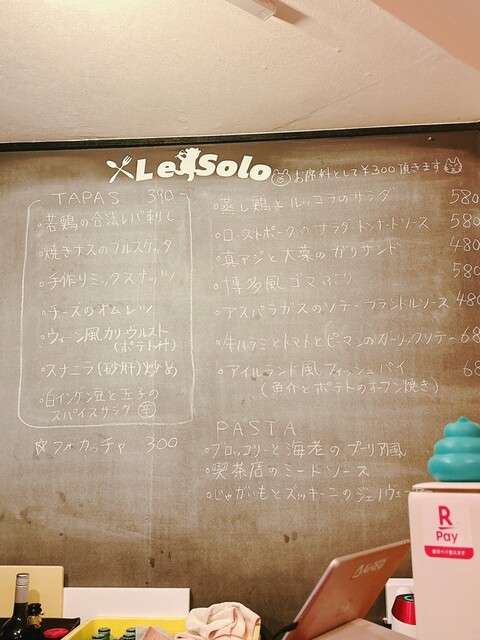 Le Solo お席料として¥300頂きます
TAPAS 390
・若鶏の合法レバ刺し
・焼きナスのブルスケッタ
・手作りミックスナッツ
・チーズのオムレツ
・ウィーン風カリーウルスト
(ポテト付)
・スナニラ(砂肝)炒め
・白インゲン豆と玉子の
スパイスサラダ
☆フォカッチャ 300
・蒸し鶏とルッコラのサラダ 580
・ローストポークのサラダ トンナートソース 580
・真アジと大葉のガリサンド 480
・博多風ゴマぶり 580
・アスパラガスのソテー フランドルソース 480
・牛ハラミとトマトとピーマンのガーリックソテー 68
・アイルランド風フィッシュパイ 68
(魚介とポテトのオーブン焼き)
PASTA
・ブロッコリーと海老のプーリア風
・喫茶店のミートソース
・じゃがいもとズッキーニのジェノヴェーゼ
R
Pay